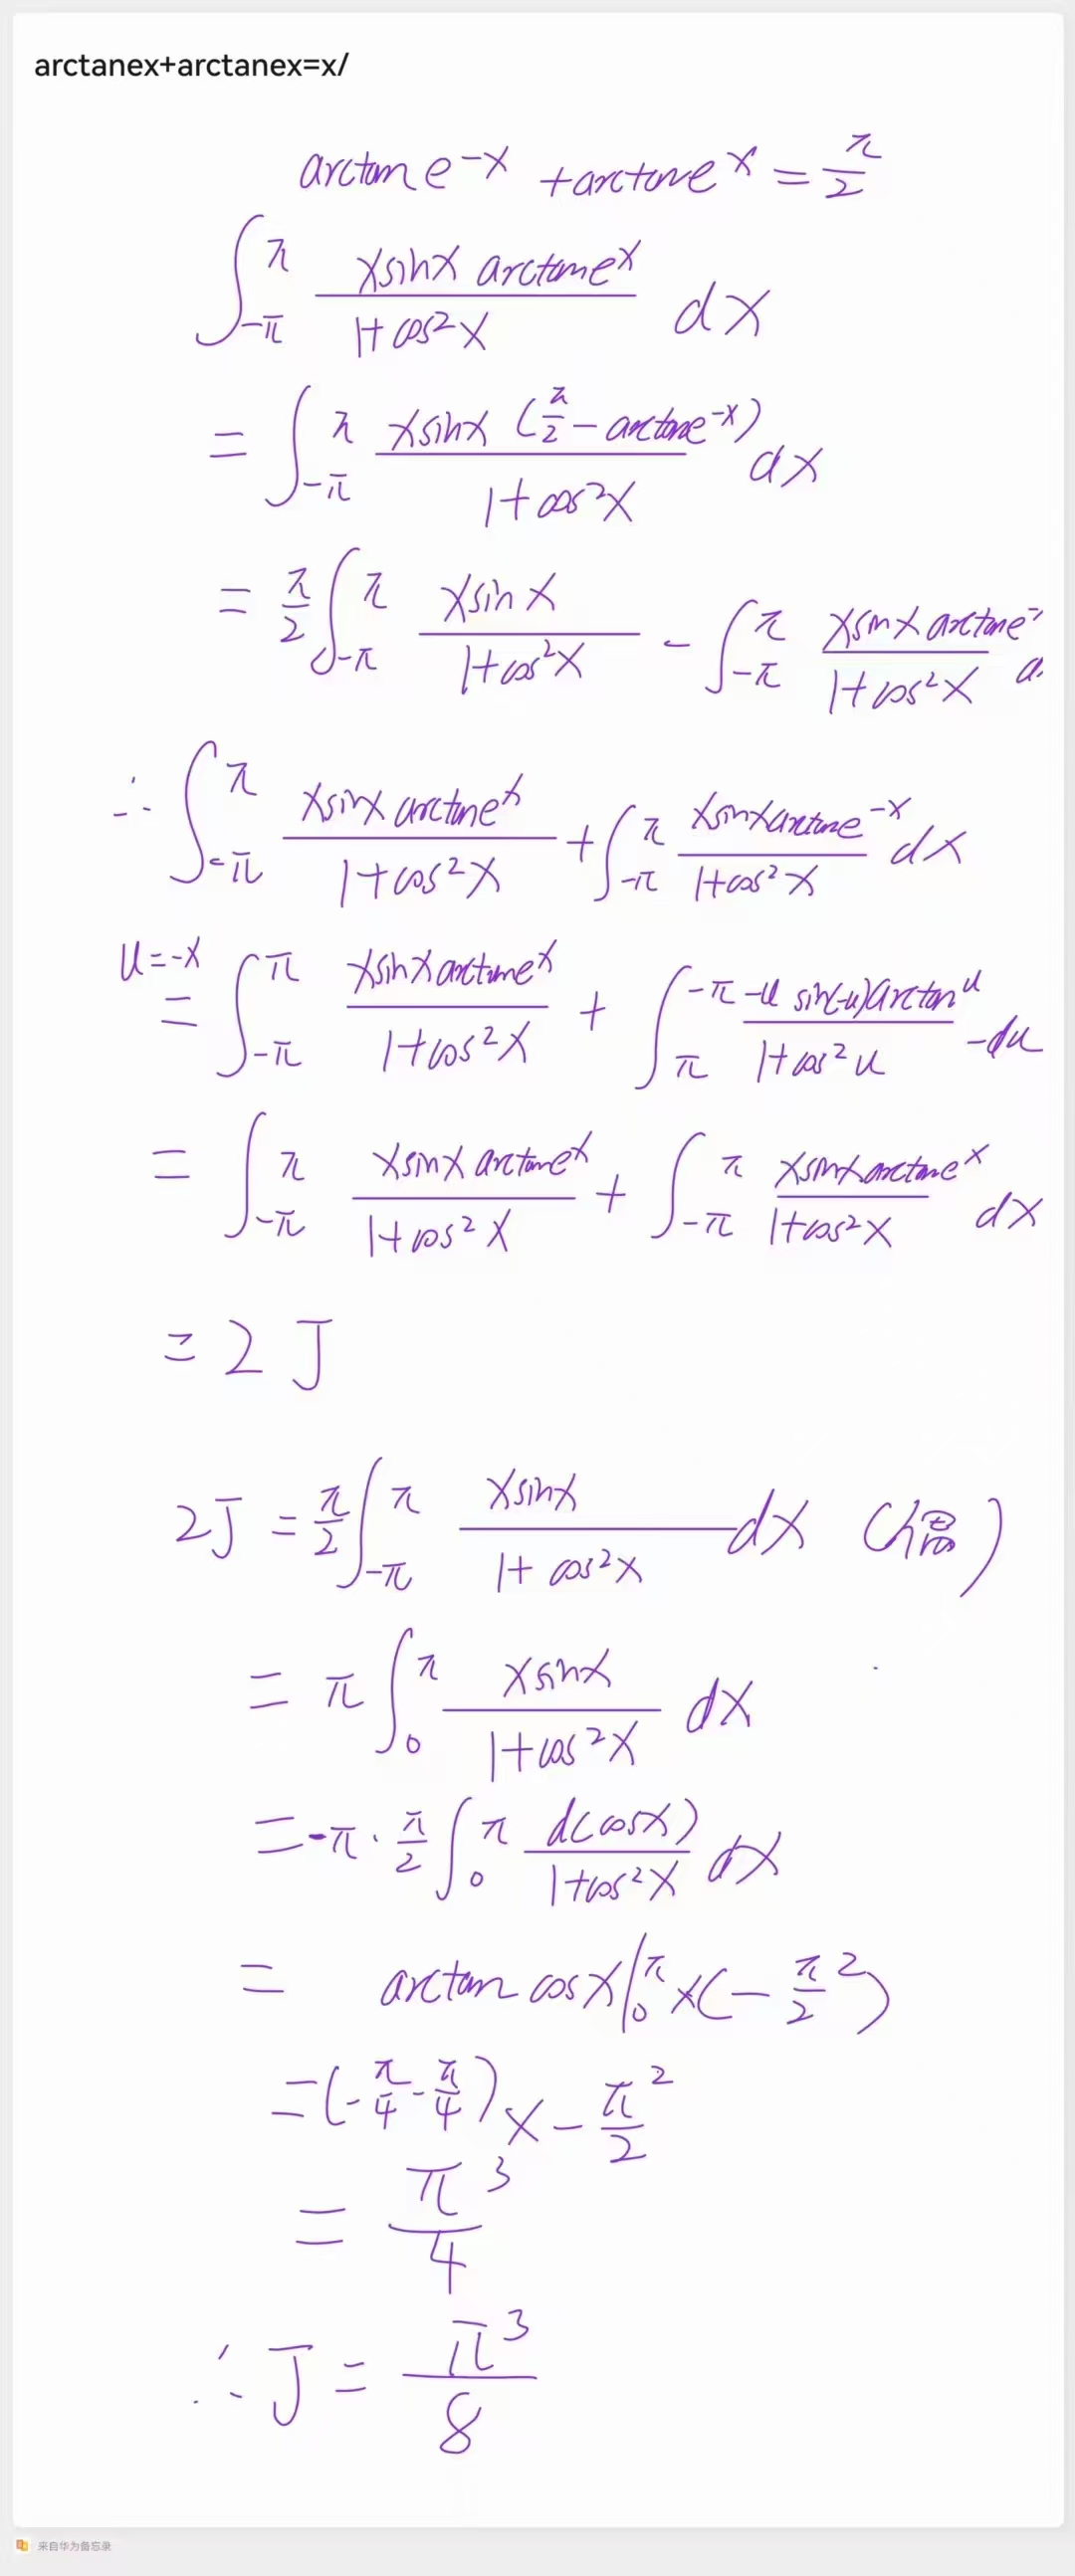 arctanex+arctanex=x/
arctan e^{-x} + arctan e^x = π/2
∫_{-π}^{π} (x sin x arctan e^x)/(1+cos²x) dx
= ∫_{-π}^{π} (x sin x (π/2 - arctan e^{-x}))/(1+cos²x) dx
= π/2 ∫_{-π}^{π} (x sin x)/(1+cos²x) - ∫_{-π}^{π} (x sin x arctan e^-)/(1+cos²x) d
∴ ∫_{-π}^{π} (x sin x arctan e^x)/(1+cos²x) + ∫_{-π}^{π} (x sin x arctan e^{-x})/(1+cos²x) dx
u=-x
= ∫_{-π}^{π} (x sin x arctan e^x)/(1+cos²x) + ∫_{π}^{-π} (-u sin(-u) arctan^u)/(1+cos²u) -du
= ∫_{-π}^{π} (x sin x arctan e^x)/(1+cos²x) + ∫_{-π}^{π} (x sin x arctan e^x)/(1+cos²x) dx
= 2J
2J = π/2 ∫_{-π}^{π} (x sin x)/(1+cos²x) dx (偶)
= π ∫_0^π (x sin x)/(1+cos²x) dx
= -π · π/2 ∫_0^π d(cos x)/(1+cos²x) dx
= arctan cos x |_0^π × (-π²/2)
= (-π/4 - π/4) × -π²/2
= π³/4
∴ J = π³/8
来自华为备忘录